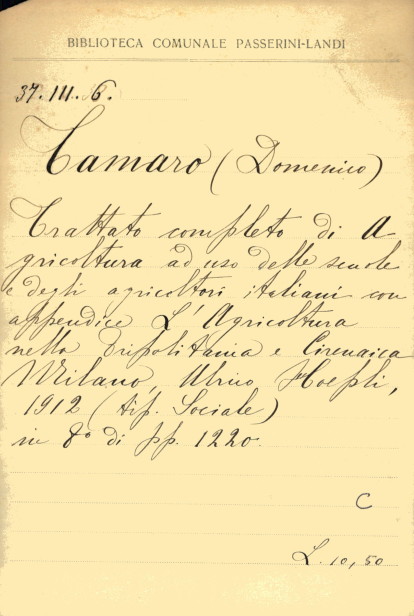 BIBLIOTECA COMUNALE PASSERINI-LANDI
37.III.6.
Tamaro (Domenico)
Trattato completo di A-
gricoltura ad uso delle scuole
e degli agricoltori italiani con
appendice L'Agricoltura
nella Tripolitania e Cirenaica
Milano, Ulrico Hoepli,
1912 (tip. Sociale)
in 8° di pp. 1220.
C
L. 10,50